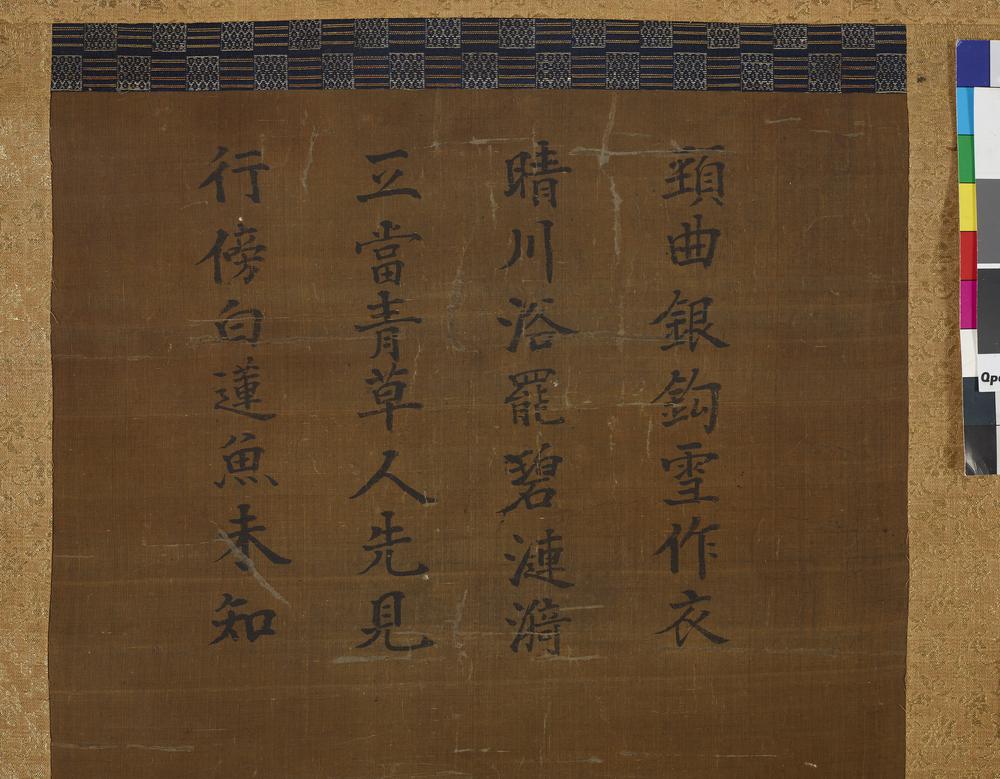 頸曲銀鈎雪作衣
晴川浴罷碧漣漪
立當青草人先見
行傍白蓮魚未知
Qp